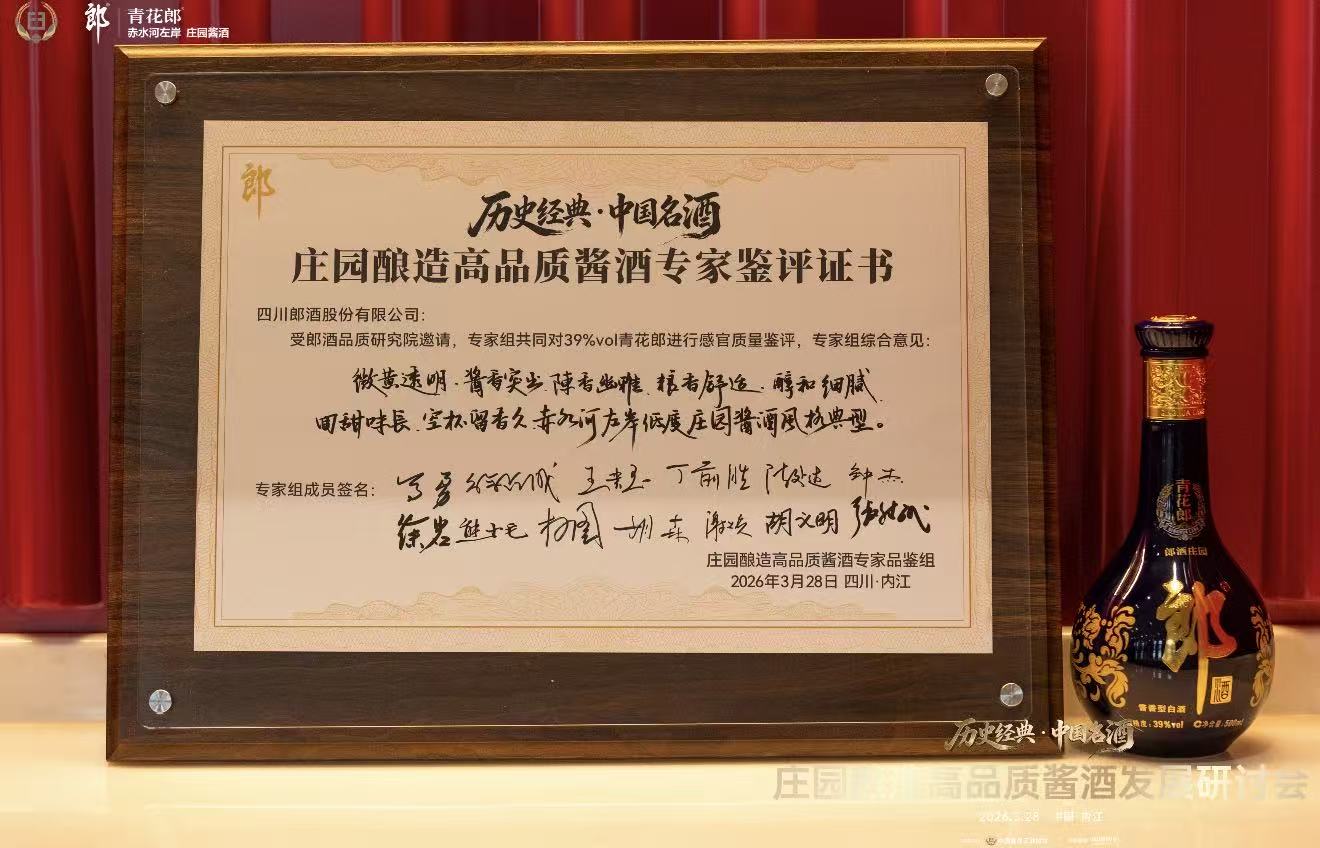 郎 青花郎
赤水河左岸 庄园酱酒
郎
历史经典·中国名酒
庄园酿造高品质酱酒专家鉴评证书
四川郎酒股份有限公司：
受郎酒品质研究院邀请，专家组共同对39%vol青花郎进行感官质量鉴评，专家组综合意见：
微黄透明、酱香突出、陳香幽雅、粮香舒适、醇和细腻、
回甜味長、空杯留香久、赤水河左岸低度庄园酱酒風格典型。
专家组成员签名：
王 丁前胜 钟杰
徐岩 熊 胡森 胡义明
庄园酿造高品质酱酒专家品鉴组
2026年3月28日 四川·内江
青花郎
郎酒庄园
郎
酒
酱香型白酒
精度：39%vol 净含量：500ml
历史经典·中国名酒
庄园酿造高品质酱酒发展研讨会
2026.3.28 中国·内江